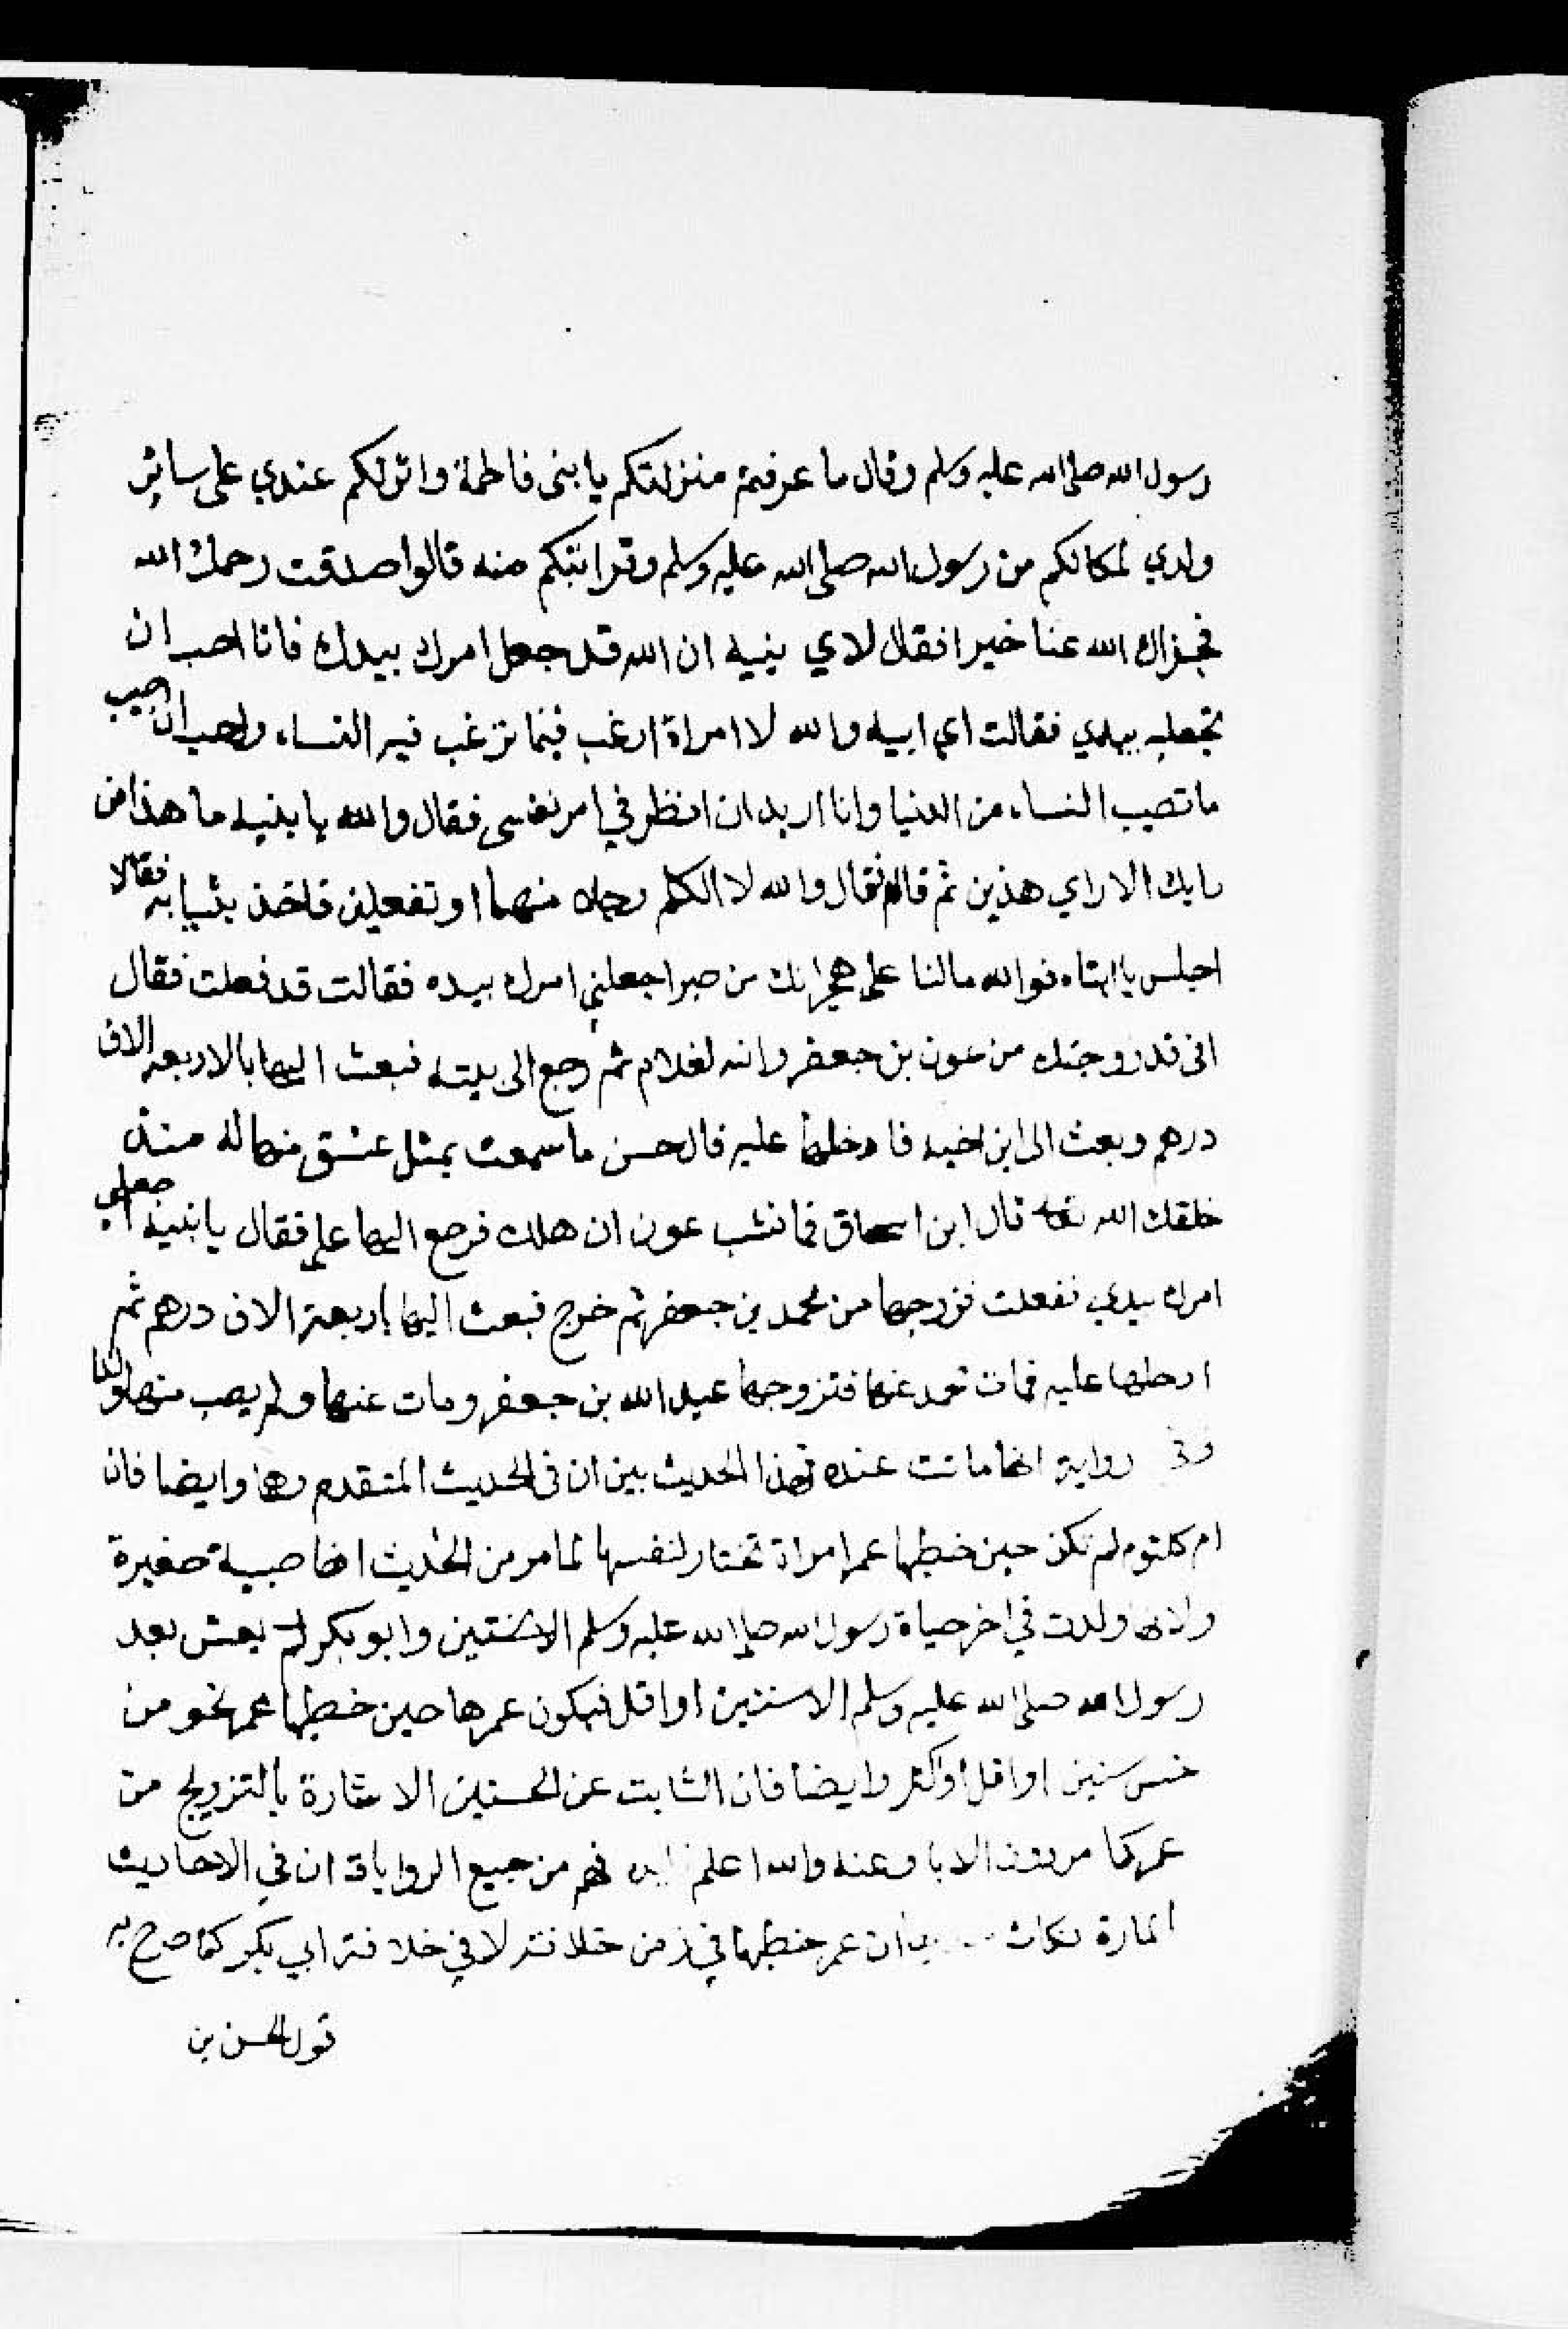 رسول الله صلى الله عليه وسلم وقال ما عرفتم منزلتكم يا بنى فاطمة واثرتكم عندي على ساير
ولدي لمكانكم من رسول الله صلى الله عليه وسلم وقرابتكم منه قالوا صدقت رحمك الله
فجزاك الله عنا خيرا فقال لاي بنيه ان الله قد جعل امرك بيدك فانا احب ان
تجعليه بيدي فقالت اي ابيه والله لا امراة ارغب فيما ترغب فيه النساء واحب ان اصيب
ما تصيب النساء من الدنيا وانا اريد ان انظر في امر نفسى فقال والله يا بنيه ما هذا من
رايك الا راي هذين ثم قام فقال والله لا اكلم رجلا منهما او تفعلين فاخذ بثيابه فقالا
اجلس يا ابتاه فوالله مالنا على هجرانك من صبر اجعلي امرك بيده فقالت قد فعلت فقال
انى قد زوجتك من عون بن جعفر وانه لغلام ثم رجع الى بيته فبعث اليها بالاربعه الاف
درهم وبعث الى ابن اخيه فادخلها عليه قال حسن ما سمعت بمثل عشق منها له منذ
خلقك الله تعالى قال ابن اسحاق فما نشب عون ان هلك فرجع اليها علي فقال يا بنية اجعلي
امرك بيدي ففعلت فزوجها من محمد بن جعفر ثم خرج فبعث اليها باربعة الاف درهم ثم
ادخلها عليه فمات محمد عنها فتزوجها عبد الله بن جعفر ومات عنها ولم يصب منها ولدا
وفي رواية انها ماتت عنده فهذا الحديث بين ان فى الحديث المتقدم وهما وايضا فان
ام كلثوم لم تكن حين خطبها عمر امراة تختار لنفسها لما مر من الحديث انها صبية صغيرة
ولانها ولدت في اخر حياة رسول الله صلى الله عليه وسلم وابو بكر لم يعش بعد
رسول الله صلى الله عليه وسلم الا سنتين او اقل فيكون عمرها حين خطبها عمر نحو من
خمس سنين او اقل او اكثر وايضا فان الثابت عن الحسنين الاشارة بالتزويج من
عمر كما مر دون الابا وعنه والله اعلم فهم من جميع الروايات ان في الاحاديث
المارة ان عمر خطبها في زمن خلافته لا في خلافة ابي بكر كما صرح به
قول الحسن بن